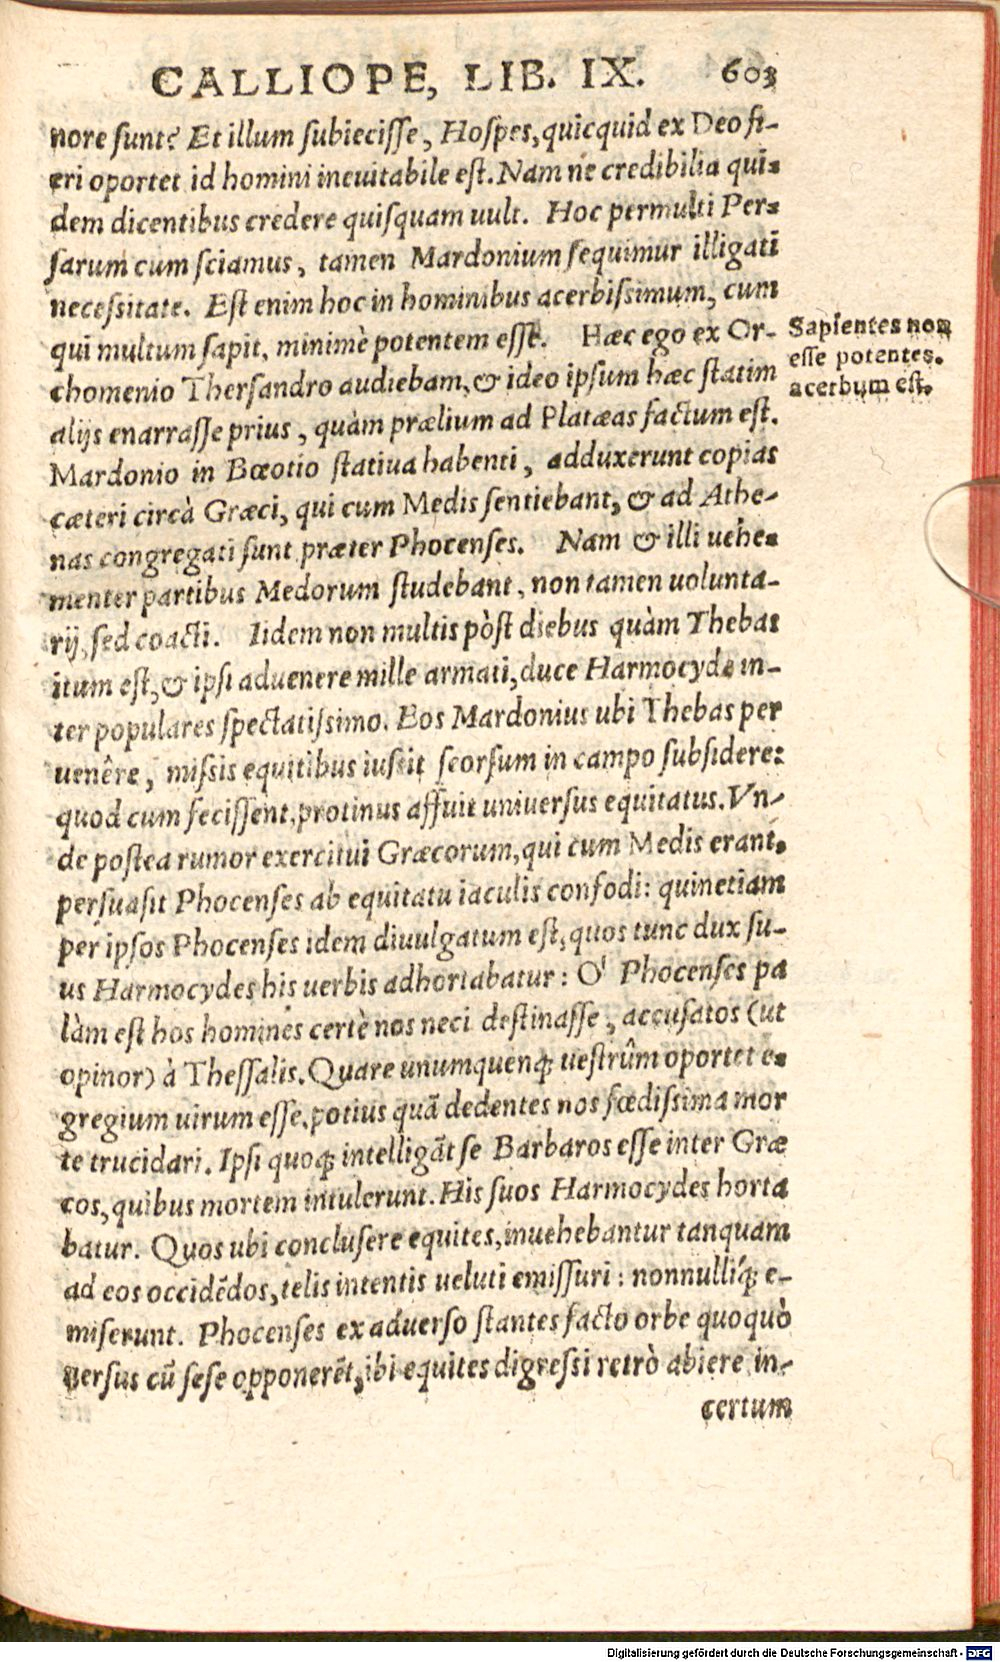 CALLIOPE, LIB. IX. 603
nore sunt? Et illum subiecisse, Hospes, quicquid ex Deo fi-
eri oportet id homini ineuitabile est. Nam ne credibilia qui-
dem dicentibus credere quisquam uult. Hoc permulti Per-
sarum cum sciamus, tamen Mardonium sequimur illigati
necessitate. Est enim hoc in hominibus acerbissimum, cum
qui multum sapit, minimè potentem esse. Hæc ego ex Or-
chomenio Thersandro audiebam, & ideo ipsum hæc statim
alijs enarrasse prius, quàm prælium ad Platæas factum est.
Mardonio in Bœotio statiua habenti, adduxerunt copias
cæteri circà Græci, qui cum Medis sentiebant, & ad Athe-
nas congregati sunt præter Phocenses. Nam & illi uehe-
menter partibus Medorum studebant, non tamen uolunta-
rij, sed coacti. Iidem non multis pòst diebus quàm Thebas
itum est, & ipsi aduenere mille armati, duce Harmocyde in-
ter populares spectatissimo. Eos Mardonius ubi Thebas per
uenêre, missis equitibus iussit seorsum in campo subsidere:
quod cum fecissent, protinus affuit uniuersus equitatus. Vn-
de postea rumor exercitui Græcorum, qui cum Medis erant,
persuasit Phocenses ab equitatu iaculis confodi: quinetiam
per ipsos Phocenses idem diuulgatum est, quos tunc dux su-
us Harmocydes his uerbis adhortabatur: O' Phocenses pa
làm est hos homines certè nos neci destinasse, accusatos (ut
opinor) à Thessalis. Quare unumquenq; uestrûm oportet e-
gregium uirum esse, potius quã dedentes nos fœdissima mor
te trucidari. Ipsi quoq; intelligãt se Barbaros esse inter Græ
cos, quibus mortem intulerunt. His suos Harmocydes horta
batur. Quos ubi conclusere equites, inuehebantur tanquam
ad eos occidẽdos, telis intentis ueluti emissuri: nonnulliq́; e-
miserunt. Phocenses ex aduerso stantes facto orbe quoquò
uersus cũ sese opponerẽt, ibi equites digressi retrò abiere in-
certum
Sapientes non
esse potentes,
acerbum est.
Digitalisierung gefördert durch die Deutsche Forschungsgemeinschaft - DFG